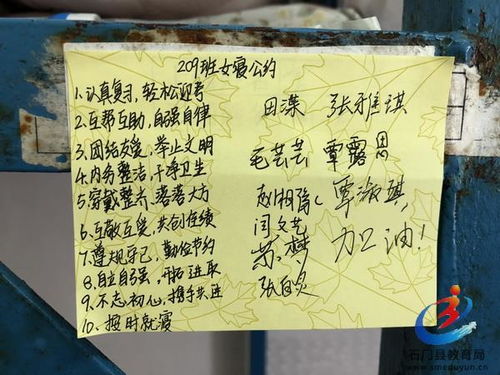 209班女寝公约
1.认真复习，轻松迎考
2.互帮互助，自强自律
3.团结友爱，举止文明
4.内务整洁，干净卫生
5.穿戴整齐，落落大方
6.互敬互爱，共创佳绩
7.遵规守己，勤俭节约
8.自立自强，开拓进取
9.不忘初心，携手共进
10.按时就寝
田溁 张雅淇
毛芸芸 覃露恩
赵湘
闫文艺
覃淑琪
苏梦
加油！
石门县教育局
www.smeduyun.cn